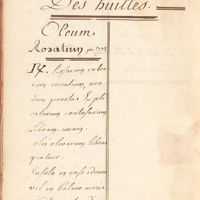 Des huilles.
Oleum
Rosatum
Rx. Rosarum rubra
rum recentium, non
dum
contusarum
Libram. unam.
olei olivarum libras
quatuor.
Insola in vase idoneo
vel in balneo mariæ